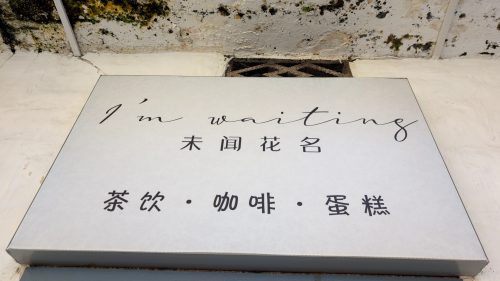 I'm waiting
未闻花名
茶饮·咖啡·蛋糕